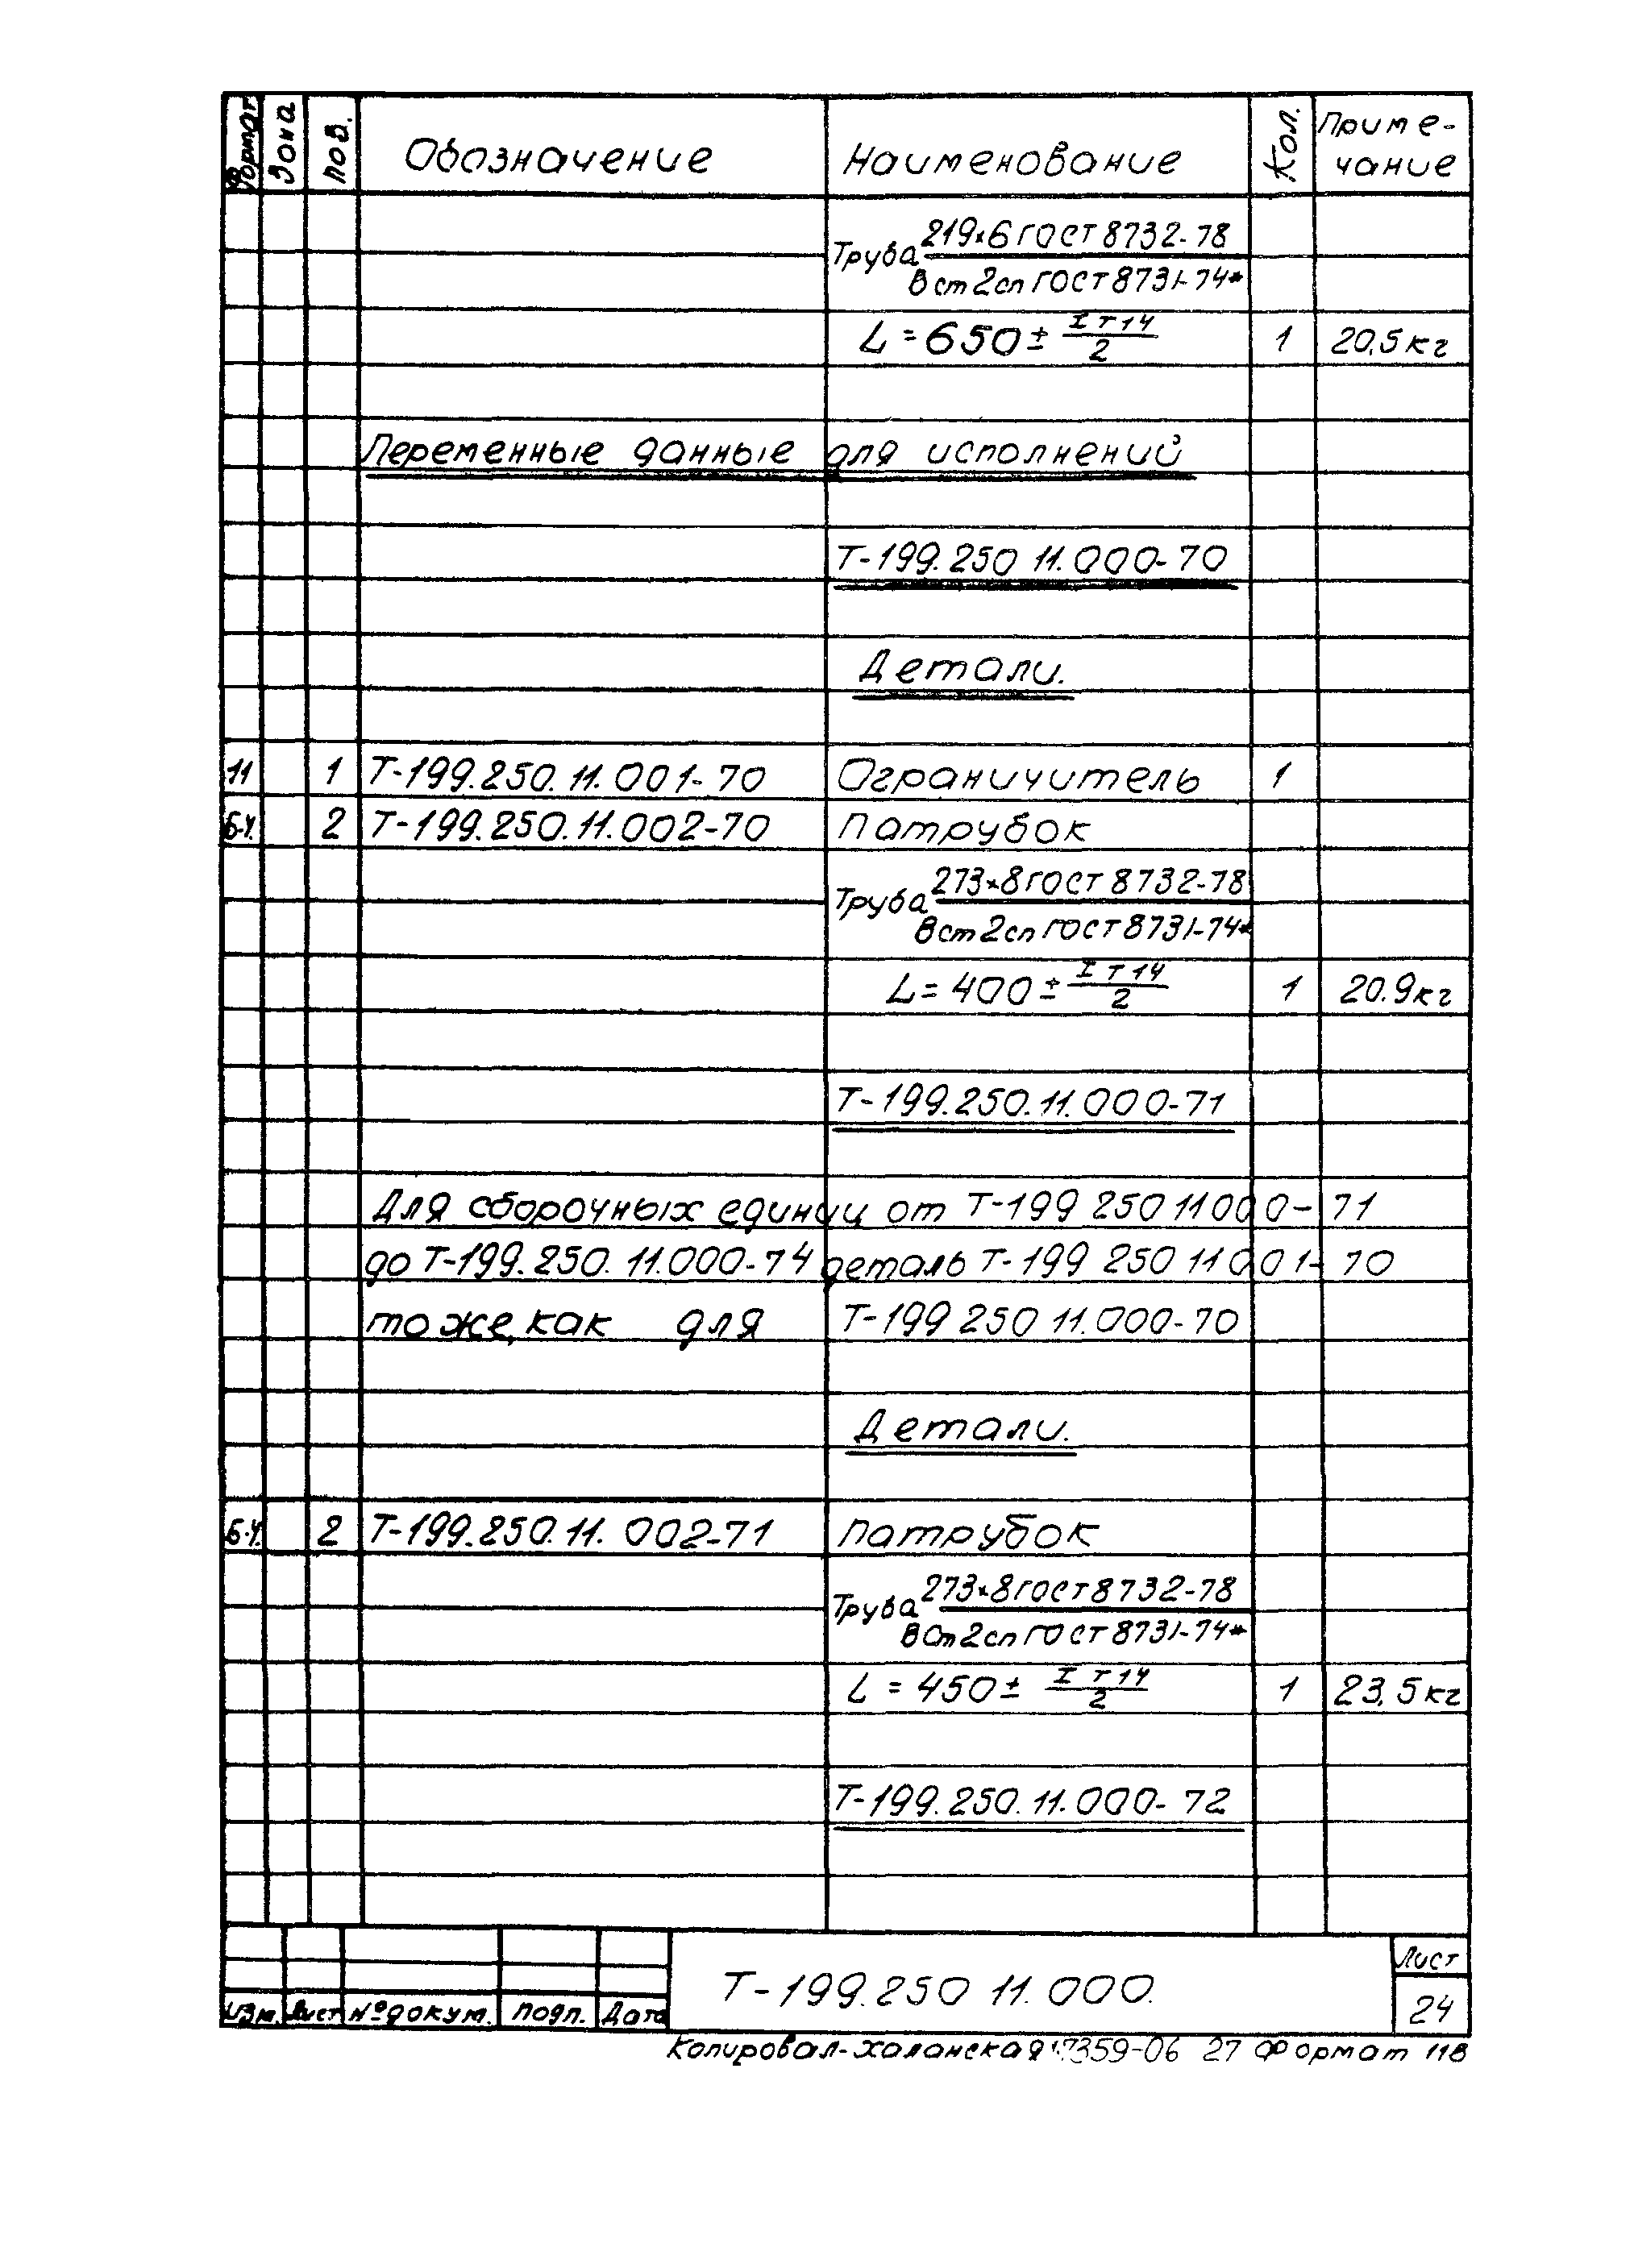 Формат Зона Поз. Обозначение Наименование Кол. Приме-
чание
219×6 ГОСТ 8732-78
Труба
В ст 2сп ГОСТ 8731-74*
L = 650 ± IT14/2 1 20,5 кг
Переменные данные для исполнений
Т-199.250 11.000-70
Детали.
11 1 Т-199.250.11.001-70 Ограничитель 1
Б.ч. 2 Т-199.250.11.002-70 Патрубок
273×8 ГОСТ 8732-78
Труба
В ст 2сп ГОСТ 8731-74*
L = 400 ± IT14/2 1 20.9 кг
Т-199.250.11.000-71
Для сборочных единиц от Т-199 250 11 000-71
до Т-199.250.11.000-74 деталь Т-199 250 11 001-70
тоже, как для Т-199 250 11.000-70
Детали.
Б.ч. 2 Т-199.250.11.002-71 Патрубок
273×8 ГОСТ 8732-78
Труба
В Ст 2сп ГОСТ 8731-74*
L = 450 ± IT14/2 1 23,5 кг
Т-199.250.11.000-72
Т-199.250 11.000. Лист
24
Изм. Лист № докум. Подп. Дата
Копировал-Халанская 27 Формат 11В